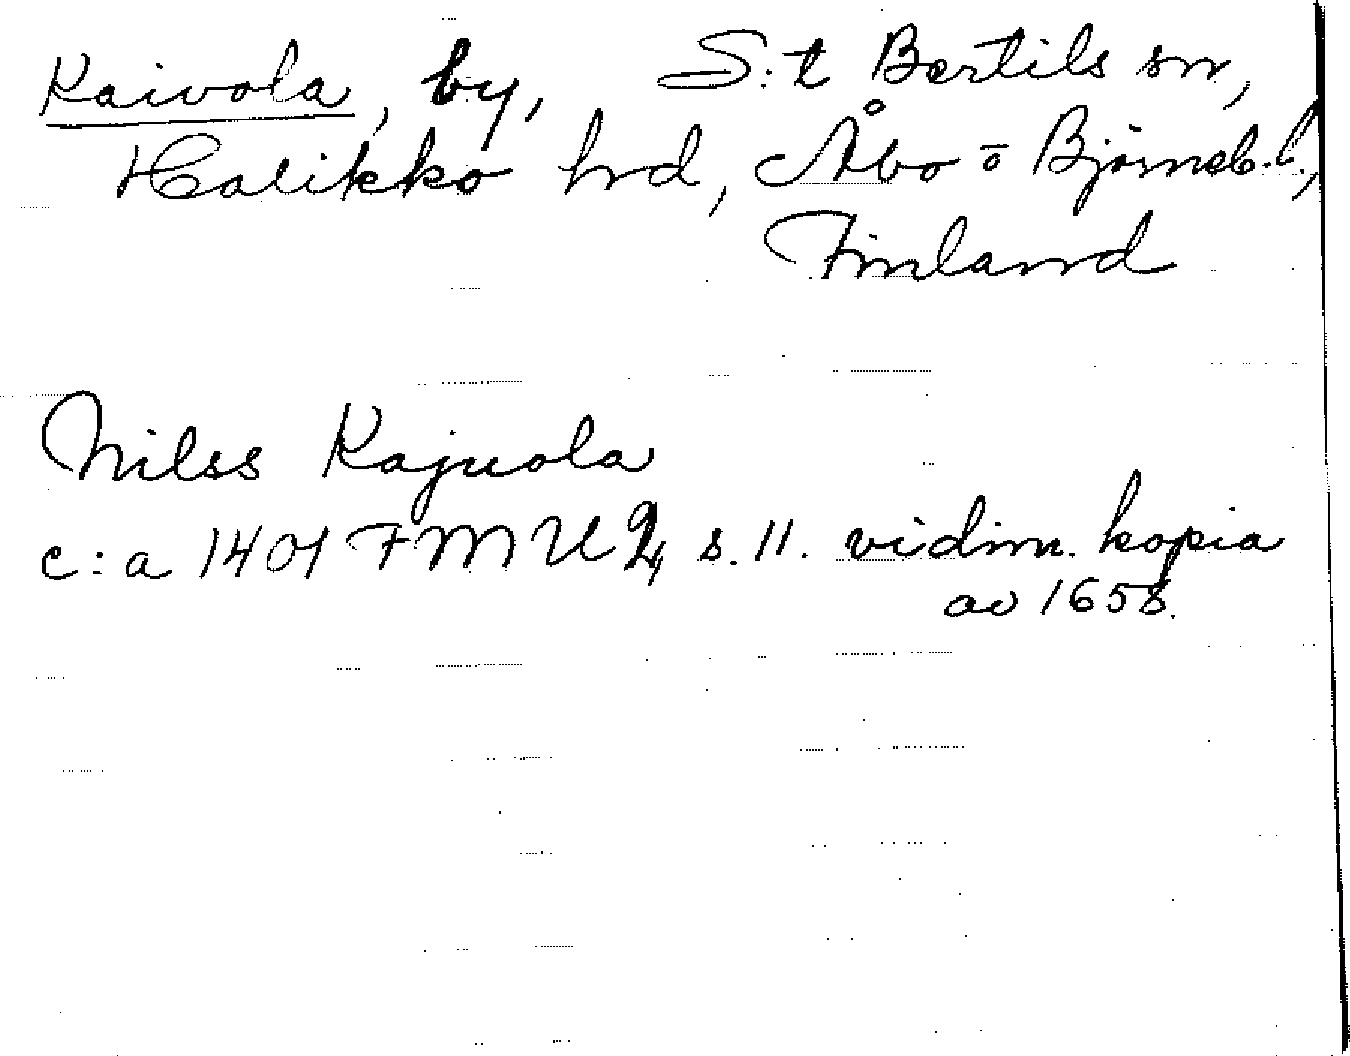 Kaivola, by, S:t Bertils sn,
Halikko hd, Åbo o Björneb.l.,
Finland
Nilss Kajuola
c:a 1401 FMU 2, s. 11. vidim. kopia
av 1658.